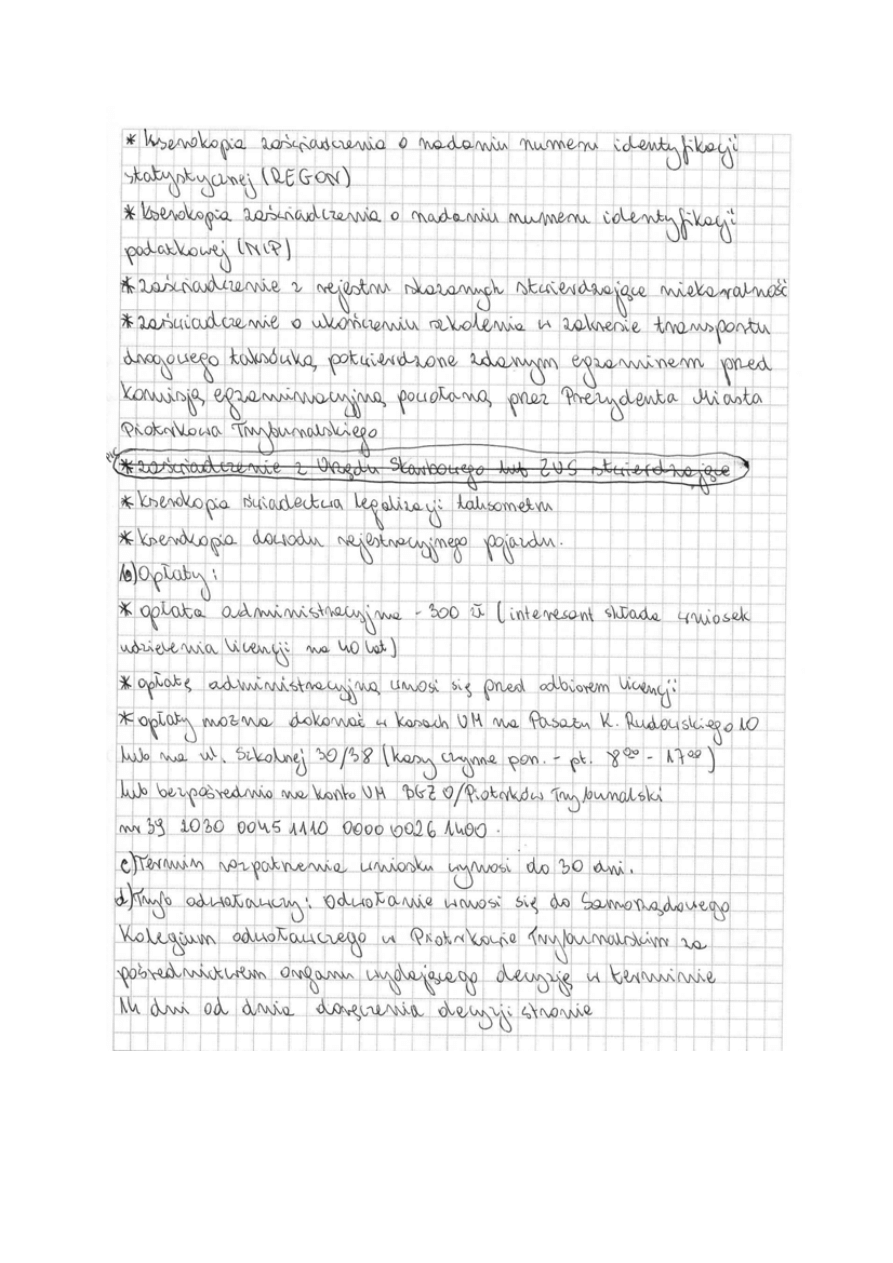 * kserokopia zaświadczenia o nadaniu numeru identyfikacji
statystycznej (REGON)
* kserokopia zaświadczenia o nadaniu numeru identyfikacji
podatkowej (NIP)
* zaświadczenie z rejestru skazanych stwierdzające niekaralność
* zaświadczenie o ukończeniu szkolenia w zakresie transportu
drogowego taksówką, potwierdzone zdanym egzaminem pred
Komisją egzaminacyjną powołaną przez Prezydenta Miasta
Piotrkowa Trybunalskiego
* zaświadczenie z Urzędu Skarbowego lub ZUS stwierdzające
* kserokopia świadectwa legalizacji taksometru
* kserokopia dowodu rejestracyjnego pojazdu.
b) Opłaty:
* opłata administracyjna - 300 zł (interesant składa wniosek
udzielenia licencji na 40 lat)
* opłatę administracyjną wnosi się przed odbiorem licencji
* opłaty można dokonać w kasach UM na Pasażu K. Rudowskiego 10
lub na ul. Szkolnej 30/38 (kasy czynne pon. - pt. 8⁰⁰ - 17⁰⁰)
lub bezpośrednio na konto UM BGŻ O/Piotrków Trybunalski
nr 39 2030 0045 1110 0000 0026 1400.
c) Termin rozpatrzenia wniosku wynosi do 30 dni.
d) Tryb odwoławczy: Odwołanie wnosi się do Samorządowego
Kolegium odwoławczego w Piotrkowie Trybunalskim za
pośrednictwem organu wydającego decyzję w terminie
14 dni od dnia doręczenia decyzji stronie